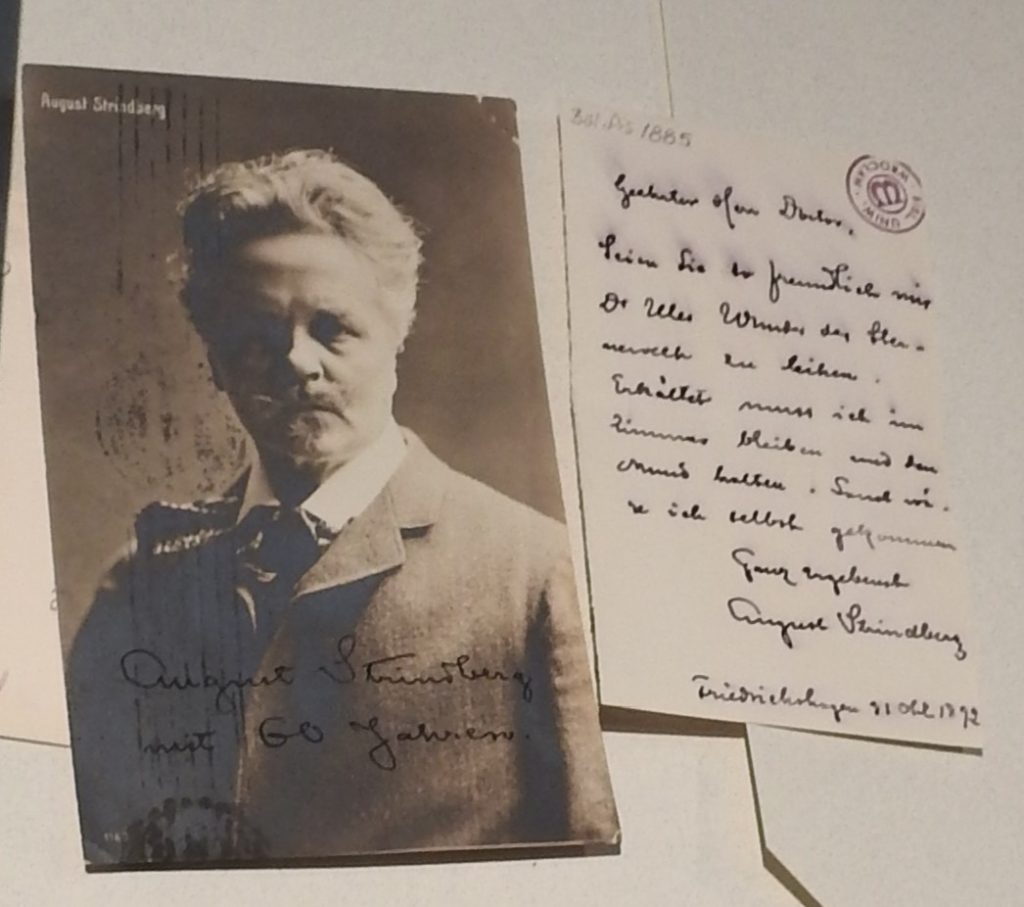 August Strindberg
August Strindberg
mit 60 Jahren.
Böl. Aś 1885
BIBL. UNIW. WROCŁAW
B
Geehrter Herr Doctor,
Seien Sie so freundlich mir
Wunder der
zu leihen.
Erkältet muss ich im
Zimmer bleiben und den
Mund halten. Sonst wä-
re ich selbst gekommen
Ganz ergebenst
August Strindberg
Friedrichshagen 31 Okt. 1892